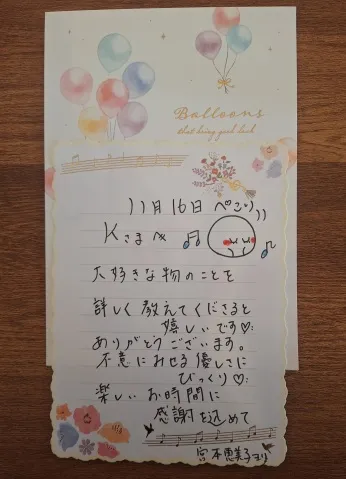 Balloons
that bring good luck
11月16日 ぺこり))
Kさまへ
大好きな物のことを
詳しく教えてくださると
嬉しいです♡
ありがとうございます。
不意にみせる優しさに
びっくり♡
楽しいお時間に
感謝を込めて
宮本恵美子より